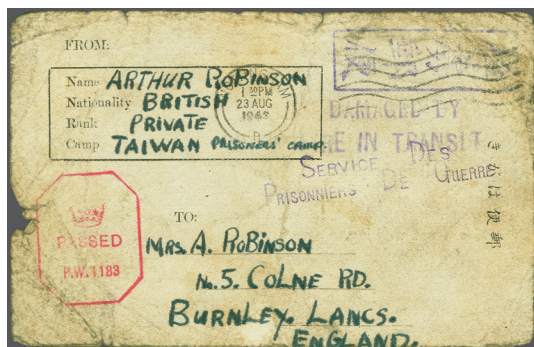 FROM:
Name ARTHUR ROBINSON
Nationality BRITISH
Rank PRIVATE
Camp TAIWAN PRISONERS' CAMP.
1 30PM
23 AUG
DAMAGED BY
IN TRANSIT
SERVICE DES
PRISONNIERS DE GUERRE
PASSED
P.W. 1183
TO:
MRS. A. ROBINSON
No. 5. COLNE RD.
BURNLEY. LANCS.
ENGLAND.